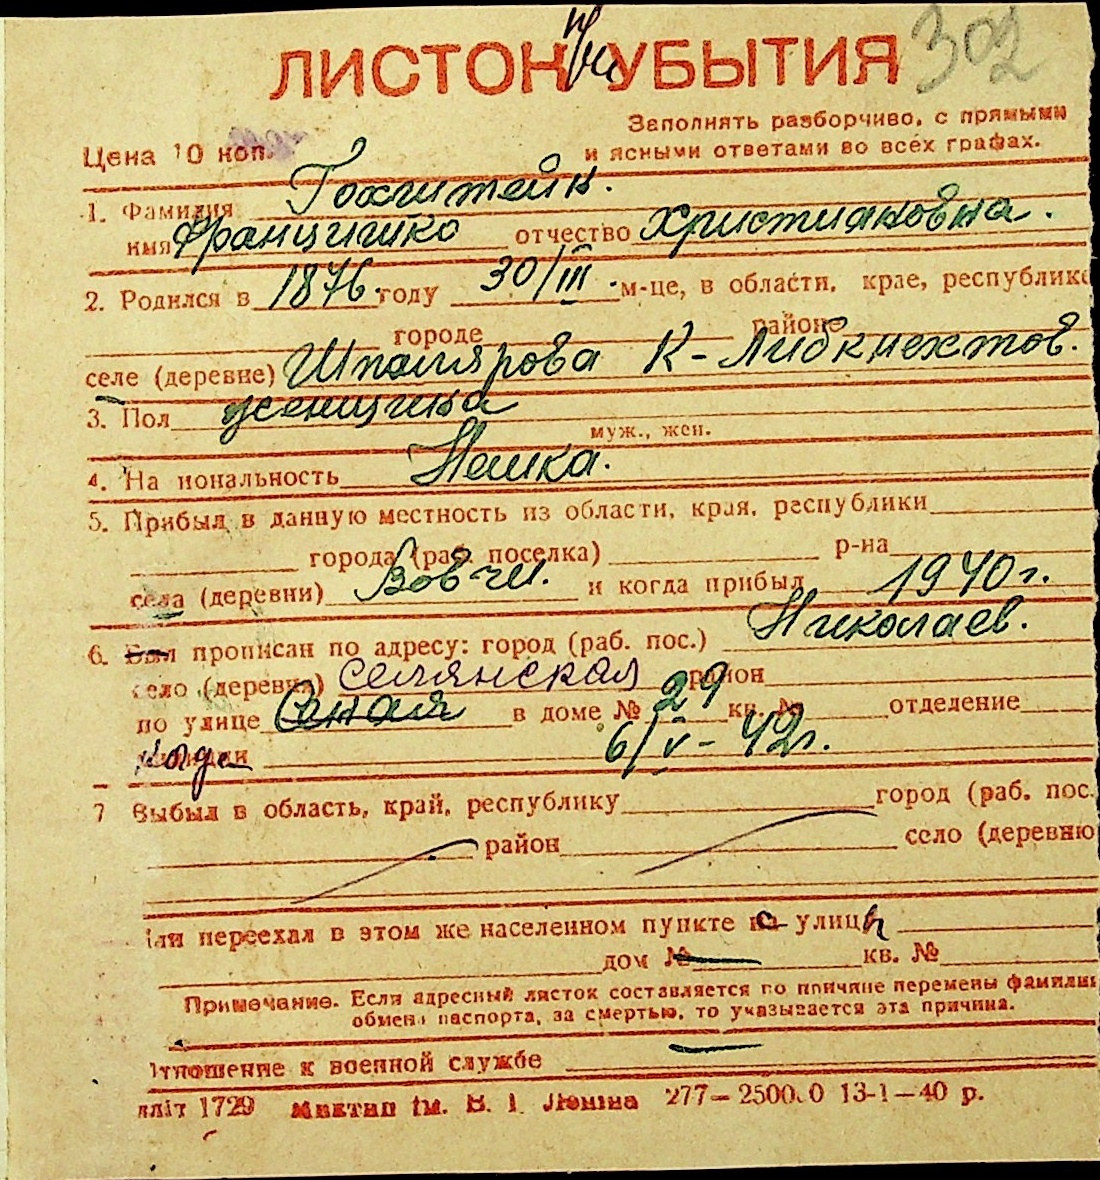 302
ЛИСТОК при УБЫТИЯ
Заполнять разборчиво, с прямыми
Цена 10 коп. и ясными ответами во всех графах.
1. Фамилия Гохштейн.
имя Францишко отчество Христиановна.
2. Родился в 1876. году 30/III. м-це, в области, крае, республике
городе районе
селе (деревне) Шпалярова К-Либкнехтов.
3. Пол женщина
муж., жен.
4. Национальность Немка.
5. Прибыл в данную местность из области, края, республики
города (раб. поселка) р-на
села (деревни) Вовчи. и когда прибыл 1940 г.
6. Был прописан по адресу: город (раб. пос.) Николаев.
село (деревня) селянская район
по улице в доме № 29 кв. № отделение
когда 6/V-42г.
7 Выбыл в область, край, республику город (раб. пос.
район село (деревню
или переехал в этом же населенном пункте с улицы
дом № кв. №
Примечание. Если адресный листок составляется по причине перемены фамилии
обмена паспорта, за смертью, то указывается эта причина.
Отношение к военной службе
літ 1729 ім. В. І. Леніна 277—25000 13-1—40 р.